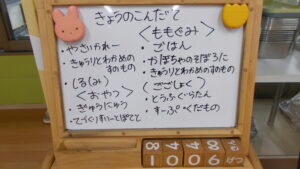 きょうのこんだて
・やさいかれー
・きゅうりとわかめの
すのもの
・しる(みん)
<おやつ>
・ぎゅうにゅう
・てづくりすいーとぽてと
<ももぐみ>
・ごはん
・かぼちゃのそぼろに
・きゅうりとわかめのすのもの
<ごごしょく>
・とうふぐらたん
・すーぷ・くだもの
1006
げつ